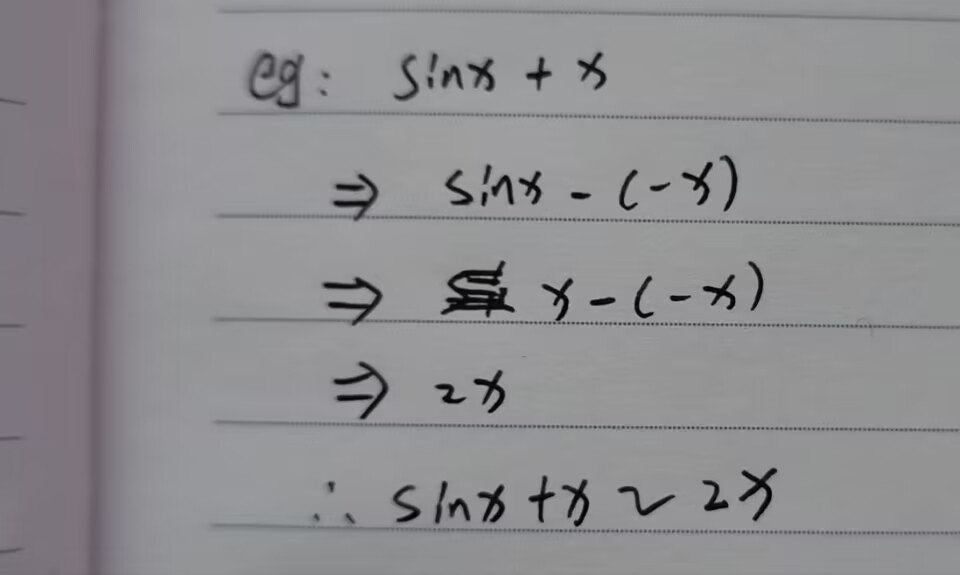 eg: sinx + x
⇒ sinx - (-x)
⇒ x - (-x)
⇒ 2x
∴ sinx + x ~ 2x